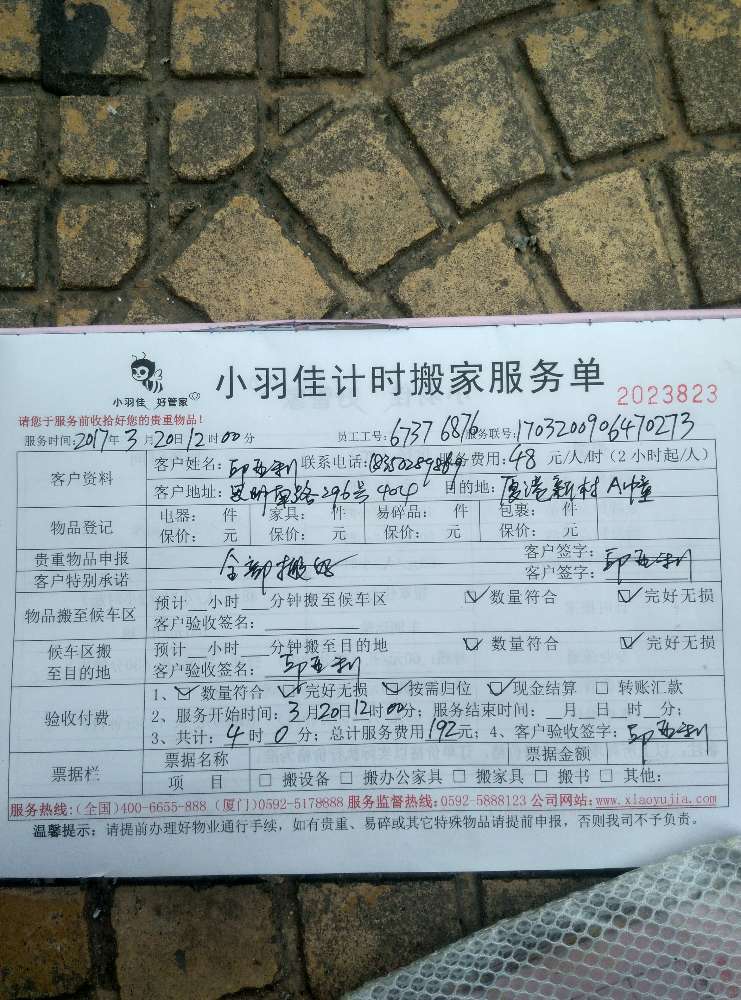 小羽佳 好管家
小羽佳计时搬家服务单
2023823
请您于服务前收拾好您的贵重物品!
服务时间:2017年3月20日12时00分 员工工号:6737 6876 服务联号:1703200906470273
客户资料 客户姓名: 联系电话: 服务费用:48元/人/时(2小时起/人)
客户地址:思明南路296号404 目的地:厦港新村A幢
物品登记 电器: 件 家具: 件 易碎品: 件 包裹: 件
保价: 元 保价: 元 保价: 元 保价: 元
贵重物品申报 全部搬好 客户签字:
客户特别承诺 客户签字:
物品搬至候车区 预计__小时__分钟搬至候车区 ☑数量符合 ☑完好无损
客户验收签名:
候车区搬至目的地 预计__小时__分钟搬至目的地 ☑数量符合 ☑完好无损
客户验收签名:
验收付费 1、☑数量符合 ☑完好无损 ☑按需归位 ☑现金结算 □转账汇款
2、服务开始时间:3月20日12时00分;服务结束时间: 月 日 时 分;
3、共计:4时0分;总计服务费用192元;4、客户验收签字:
票据栏 票据名称 票据金额
项 目 □搬设备 □搬办公家具 □搬家具 □搬书 □其他:
服务热线:(全国)400-6655-888 (厦门)0592-5178888 服务监督热线:0592-5888123 公司网站:www.xiaoyujia.com
温馨提示:请提前办理好物业通行手续,如有贵重、易碎或其它特殊物品请提前申报,否则我司不予负责。